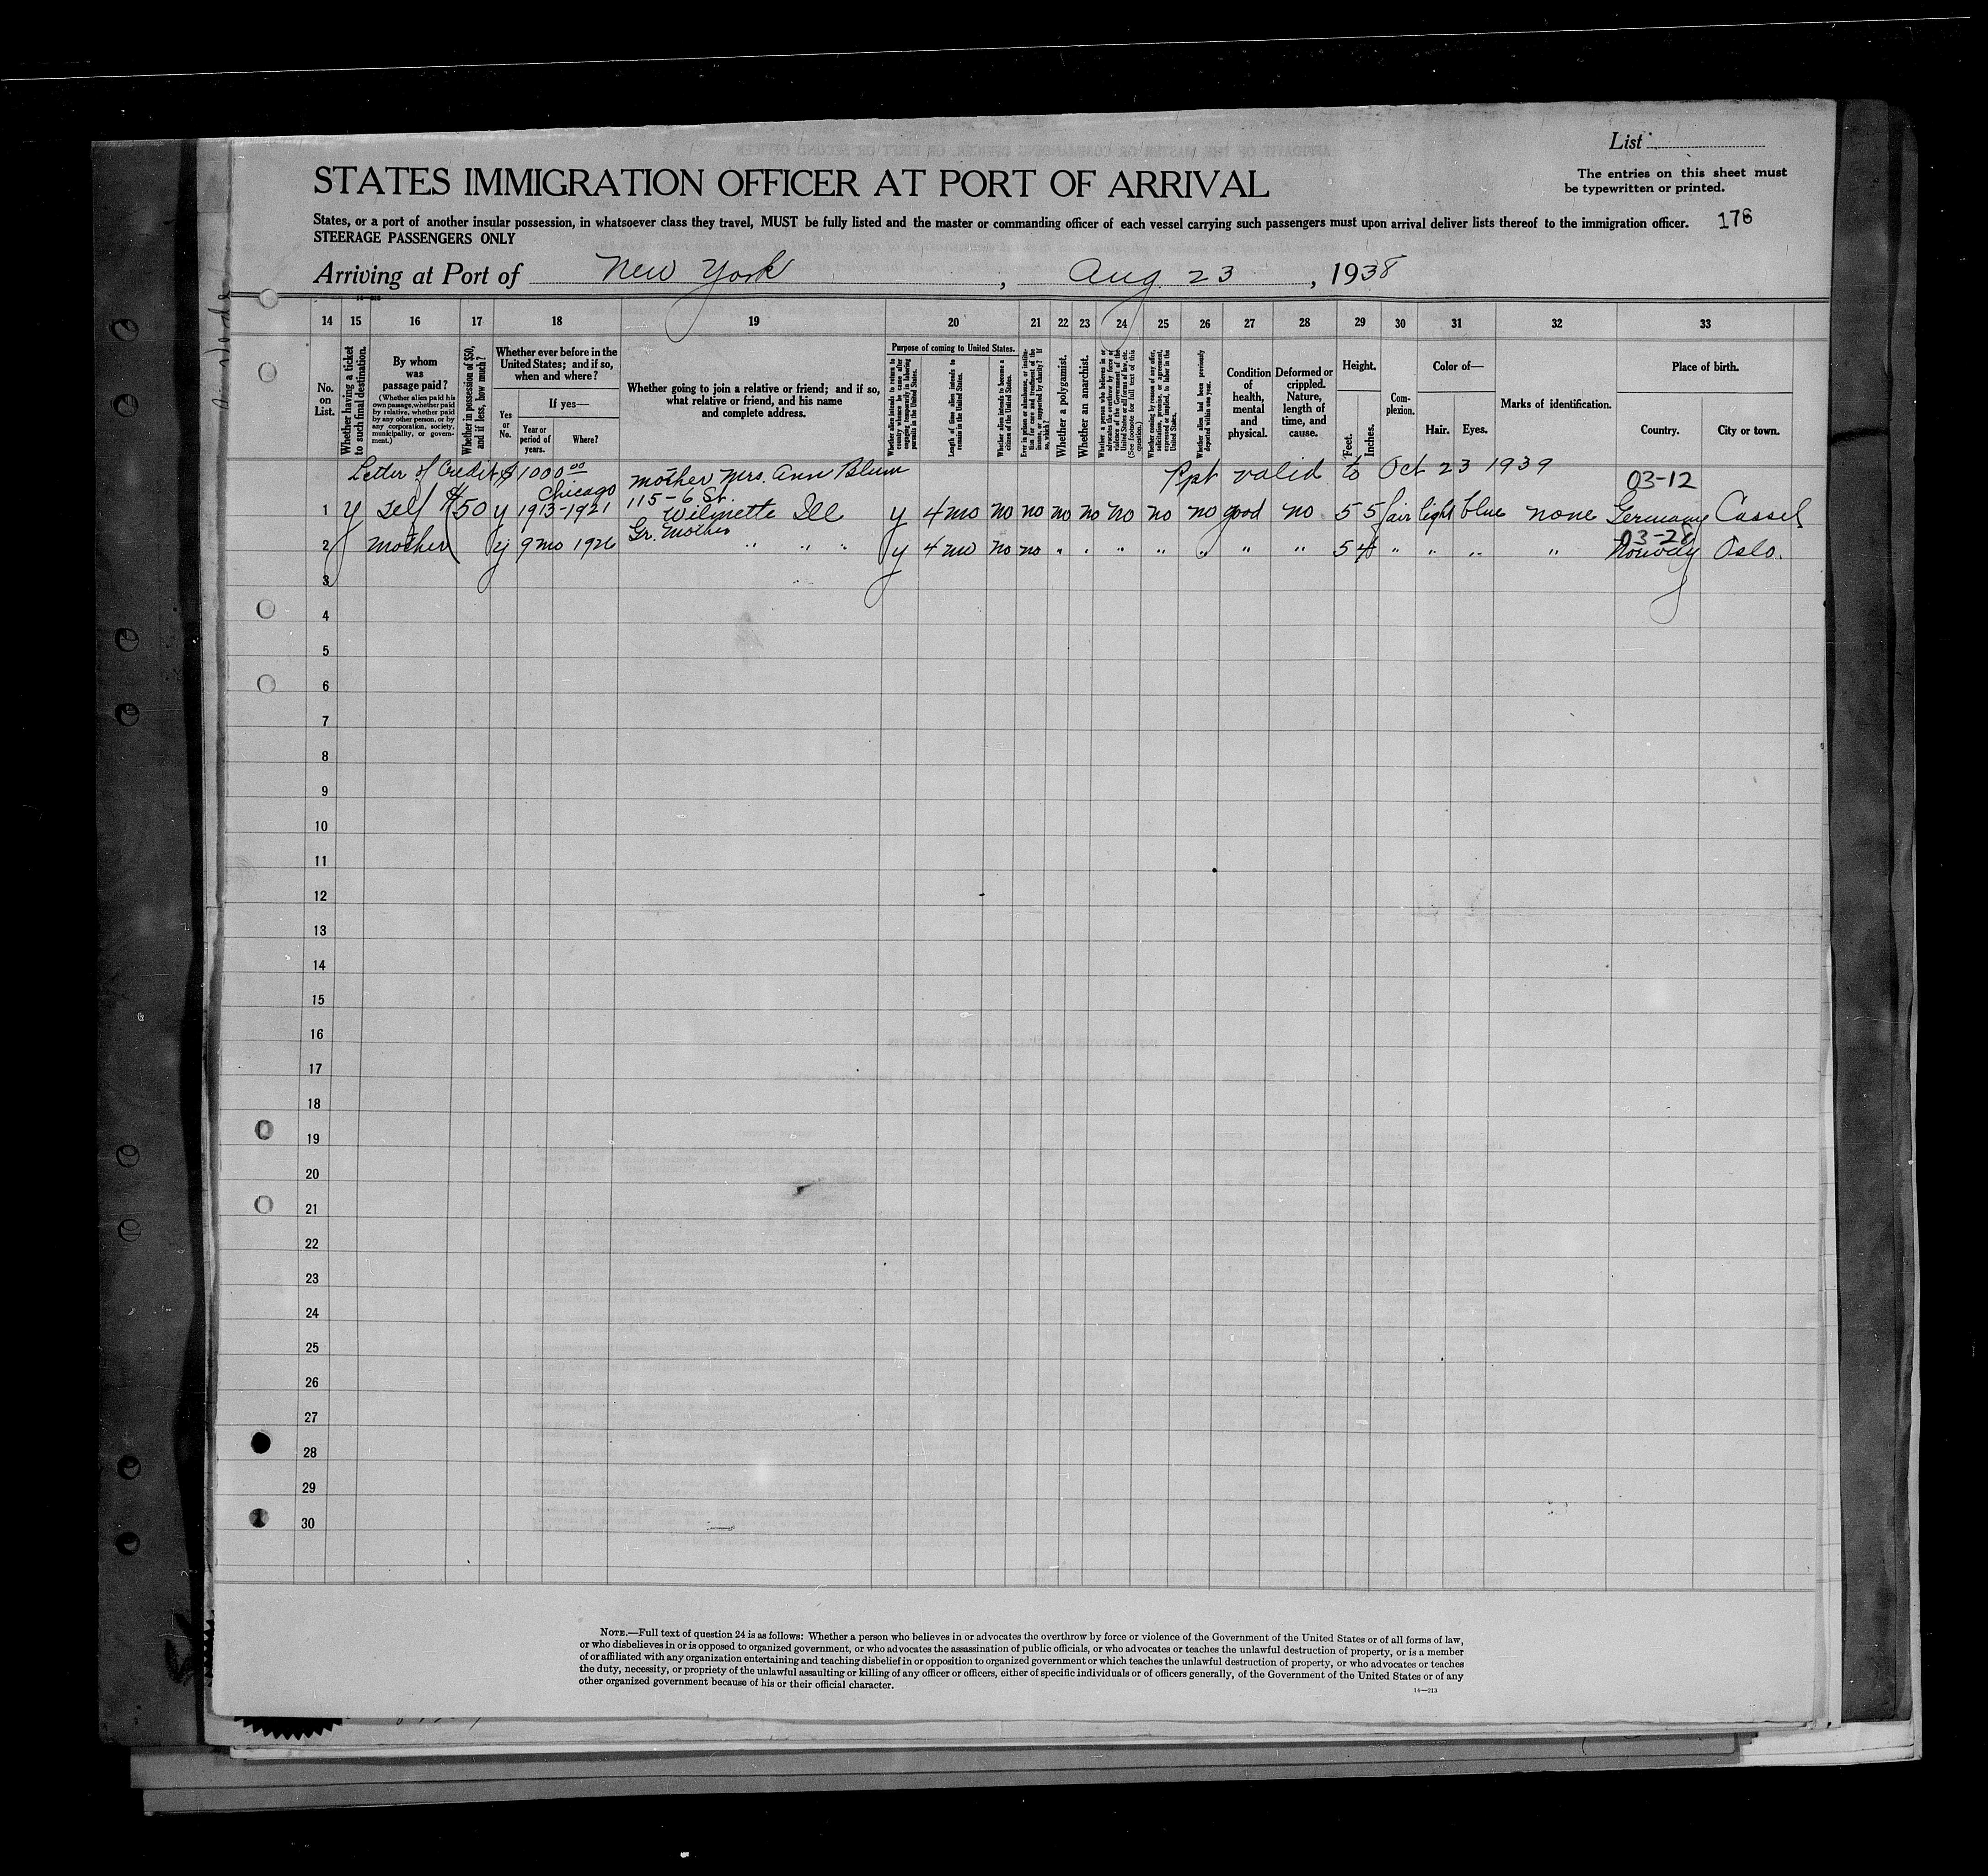 List
STATES IMMIGRATION OFFICER AT PORT OF ARRIVAL
The entries on this sheet must
be typewritten or printed.
States, or a port of another insular possession, in whatsoever class they travel, MUST be fully listed and the master or commanding officer of each vessel carrying such passengers must upon arrival deliver lists thereof to the immigration officer.
176
STEERAGE PASSENGERS ONLY
Arriving at Port of New York, Aug 23, 1938
14 15 16 17 18 19 20 21 22 23 24 25 26 27 28 29 30 31 32 33
No. on List.
Whether having a ticket to such final destination.
By whom was passage paid?
(Whether alien paid his own passage, whether paid by relative, whether paid by any other person, or by any corporation, society, municipality, or government.)
Whether in possession of $50, and if less, how much?
Whether ever before in the United States; and if so, when and where?
Yes or No.
If yes—
Year or period of years.
Where?
Whether going to join a relative or friend; and if so, what relative or friend, and his name and complete address.
Purpose of coming to United States.
Whether alien intends to return to country whence he came after engaging temporarily in laboring pursuits in the United States.
Length of time alien intends to remain in the United States.
Whether alien intends to become a citizen of the United States.
Ever in prison or almshouse, or institution for care and treatment of the insane, or supported by charity? If so, which?
Whether a polygamist.
Whether an anarchist.
Whether a person who believes in or advocates the overthrow by force or violence of the Government of the United States or all forms of law, etc. (See footnote for full text of this question.)
Whether coming by reason of any offer, solicitation, promise, or agreement, expressed or implied, to labor in the United States.
Whether alien had been previously deported within one year.
Condition of health, mental and physical.
Deformed or crippled. Nature, length of time, and cause.
Height.
Feet. Inches.
Complexion.
Color of—
Hair. Eyes.
Marks of identification.
Place of birth.
Country. City or town.
Letter of Credit $1000 00 mother Mrs. Ann Blum Ppt valid to Oct 23 1939
Chicago 115-6 St. 03-12
1 y self $50 y 1913-1921 Wilmette Ill y 4 mo no no no no no no no good no 5 5 fair light blue none Germany Cassel
Gr. Mother 03-28
2 y mother y 9 mo 1926 " " " y 4 mo no no " " " " " " " 5 4 " " " " Norway Oslo.
3
4
5
6
7
8
9
10
11
12
13
14
15
16
17
18
19
20
21
22
23
24
25
26
27
28
29
30
NOTE.—Full text of question 24 is as follows: Whether a person who believes in or advocates the overthrow by force or violence of the Government of the United States or of all forms of law,
or who disbelieves in or is opposed to organized government, or who advocates the assassination of public officials, or who advocates or teaches the unlawful destruction of property, or is a member
of or affiliated with any organization entertaining and teaching disbelief in or opposition to organized government or which teaches the unlawful destruction of property, or who advocates or teaches
the duty, necessity, or propriety of the unlawful assaulting or killing of any officer or officers, either of specific individuals or of officers generally, of the Government of the United States or of any
other organized government because of his or their official character.
14—213